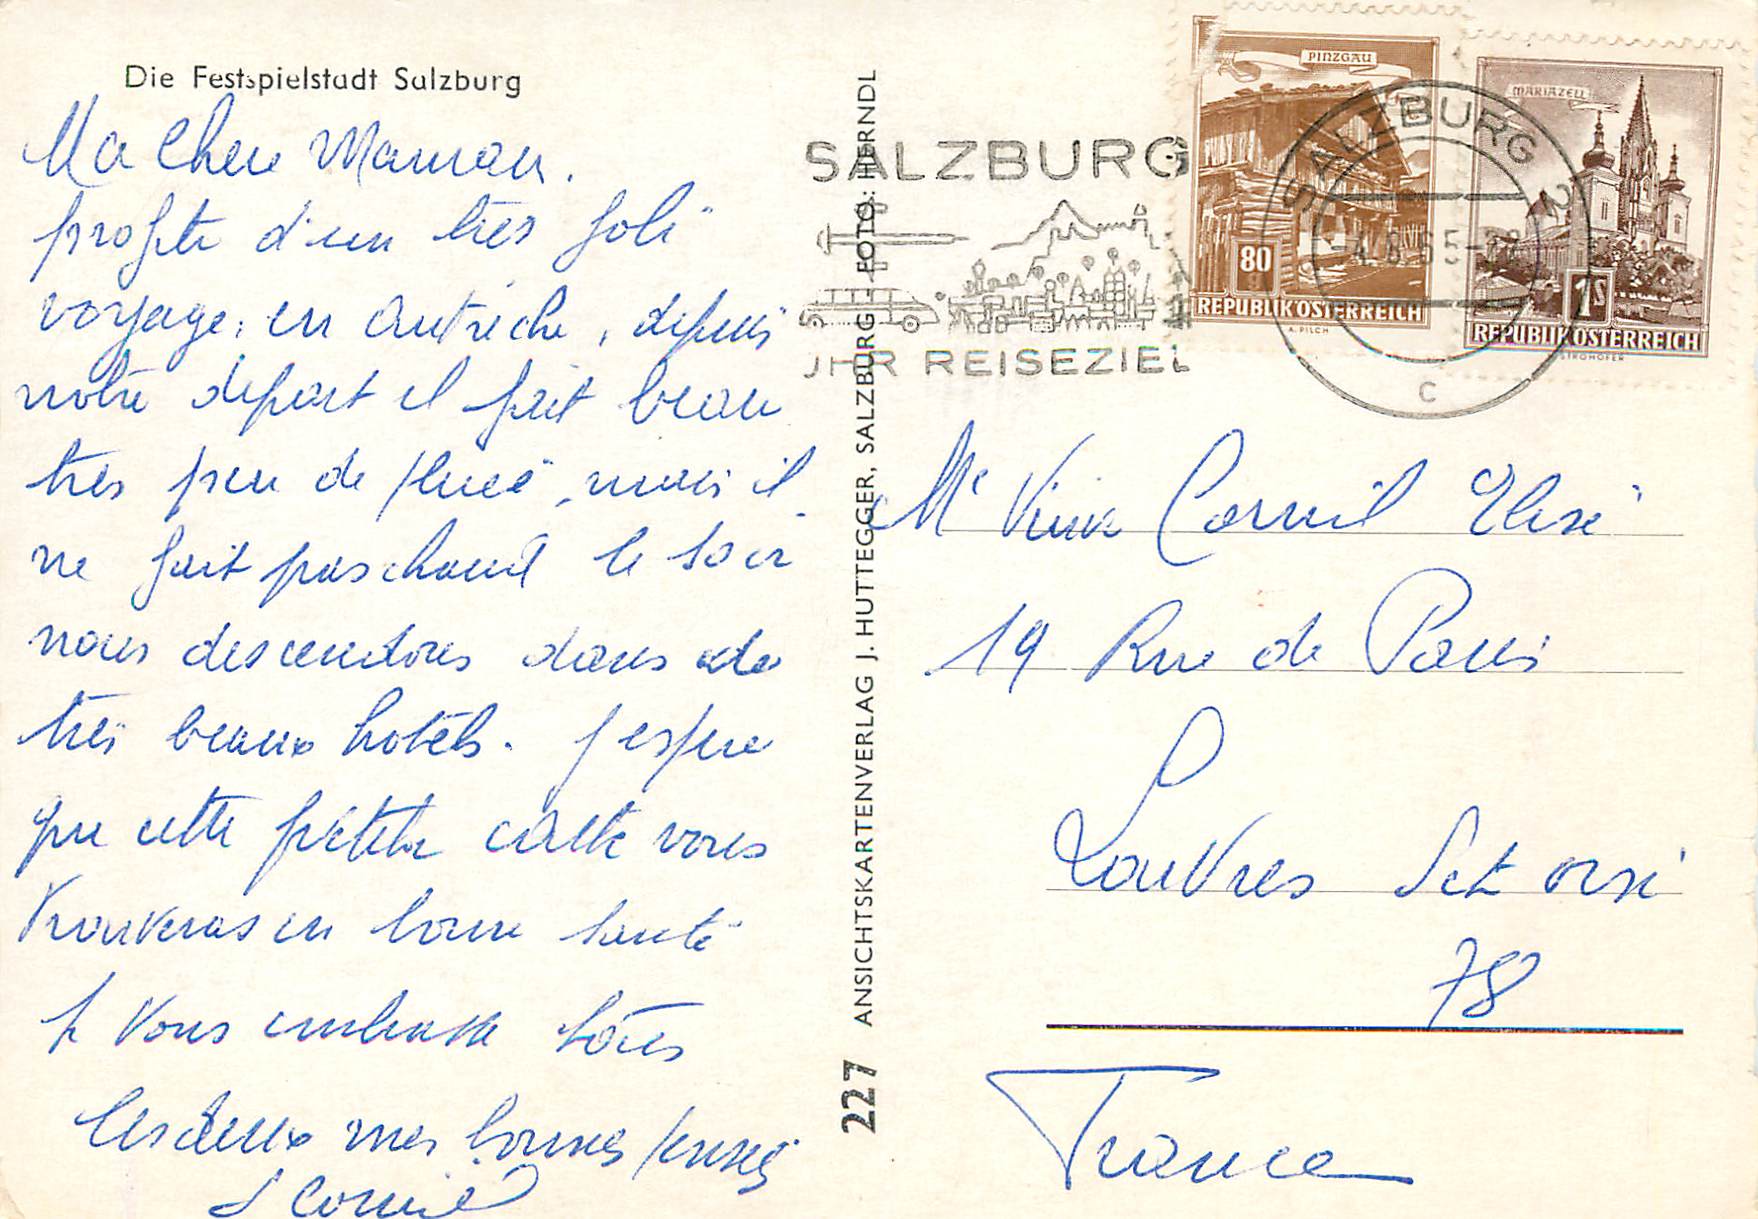 Die Festspielstadt Salzburg
Ma Chere Maman.
profite d'un très joli
voyage, en Autriche, depuis
notre depart il fait beau
très peu de pluie, mais il
ne fait pas chaud le soir
nous descendons dans de
très beaux hotels. J espere
que cette petite carte vous
trouveras en bonne santé
Je vous embrasse tous
les deux mes bonnes pensés
227 ANSICHTSKARTENVERLAG J. HUTTEGGER, SALZBURG - FOTO: HERNDL
SALZBURG
JHR REISEZIEL
SALZBURG 2
C
PINZGAU
80
g
REPUBLIK ÖSTERREICH
A. PILCH
MARIAZELL
1S
REPUBLIK ÖSTERREICH
STROHOFER
Me Cornil Elise
19 Rue de Paris
Louvres Set oise
78
France